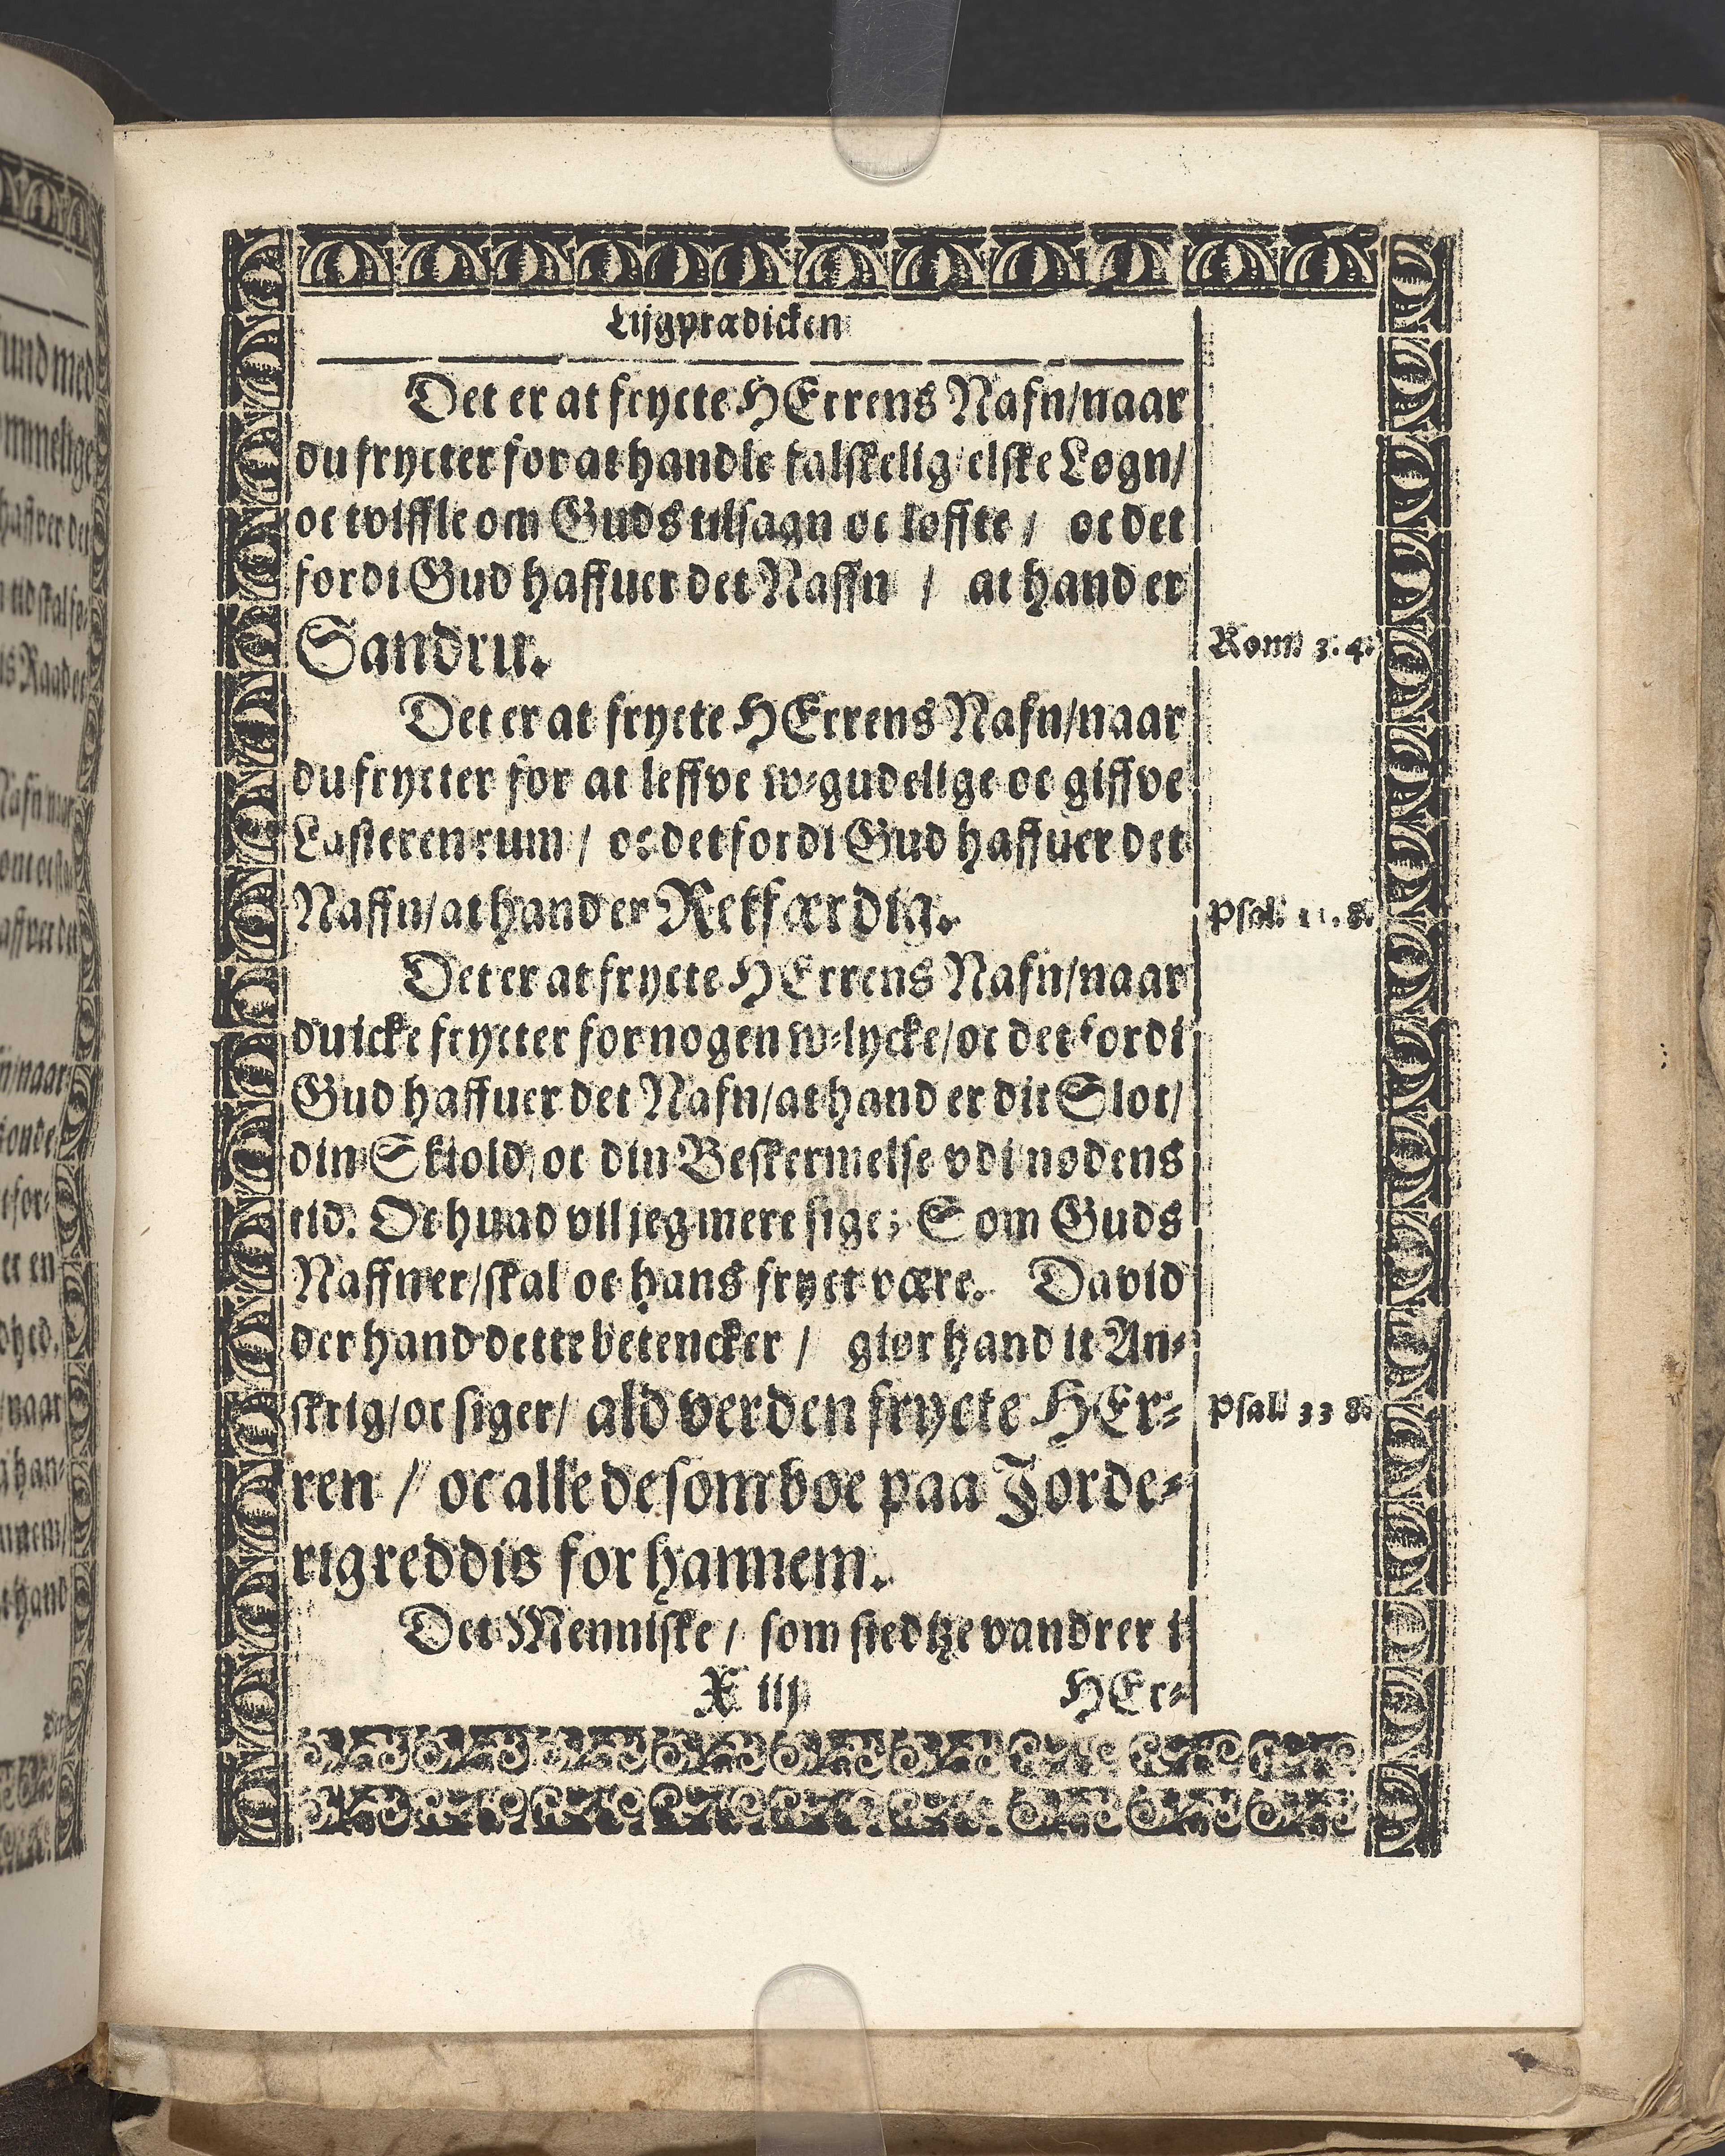 Lijgprædicken
Det er at frycte HErrens Nafn/naar
du frycter for at handle falskelig/elske Løgn/
oc tviffle om Guds tilsagn oc løffte / oc det
fordi Gud haffuer det Naffn / at hand er
Sandru.
Rom. 3. 4.
Det er at frycte HErrens Nafn/naar
du frycter for at leffve w-gudelige oc giffve
Lasteren rum / oc det fordi Gud haffuer det
Naffn/at hand er Retfærdig.
Psal. 11. 8.
Det er at frycte HErrens Nafn/naar
du icke frycter for nogen w-lycke/oc det fordi
Gud haffuer det Nafn/at hand er dit Slot/
din Skiold/oc din Beskermelse vdi nødens
tid. Oc huad vil jeg mere sige; Som Guds
Naffn er/skal oc hans fryct være. David
der hand dette betencker / giør hand it An-
skrig/oc siger/ ald verden frycte HEr-
Psal. 33 8.
ren / oc alle de som boe paa Jorde-
rig reddis for hannem.
Det Menniske / som stedtze vandrer i
X iij HEr-
und med
mmelige
haffver det
tid skal se-
is Raad er
Nafn/naar
n/naar
et en
dhed.
/naar
i han-
annem/
hand